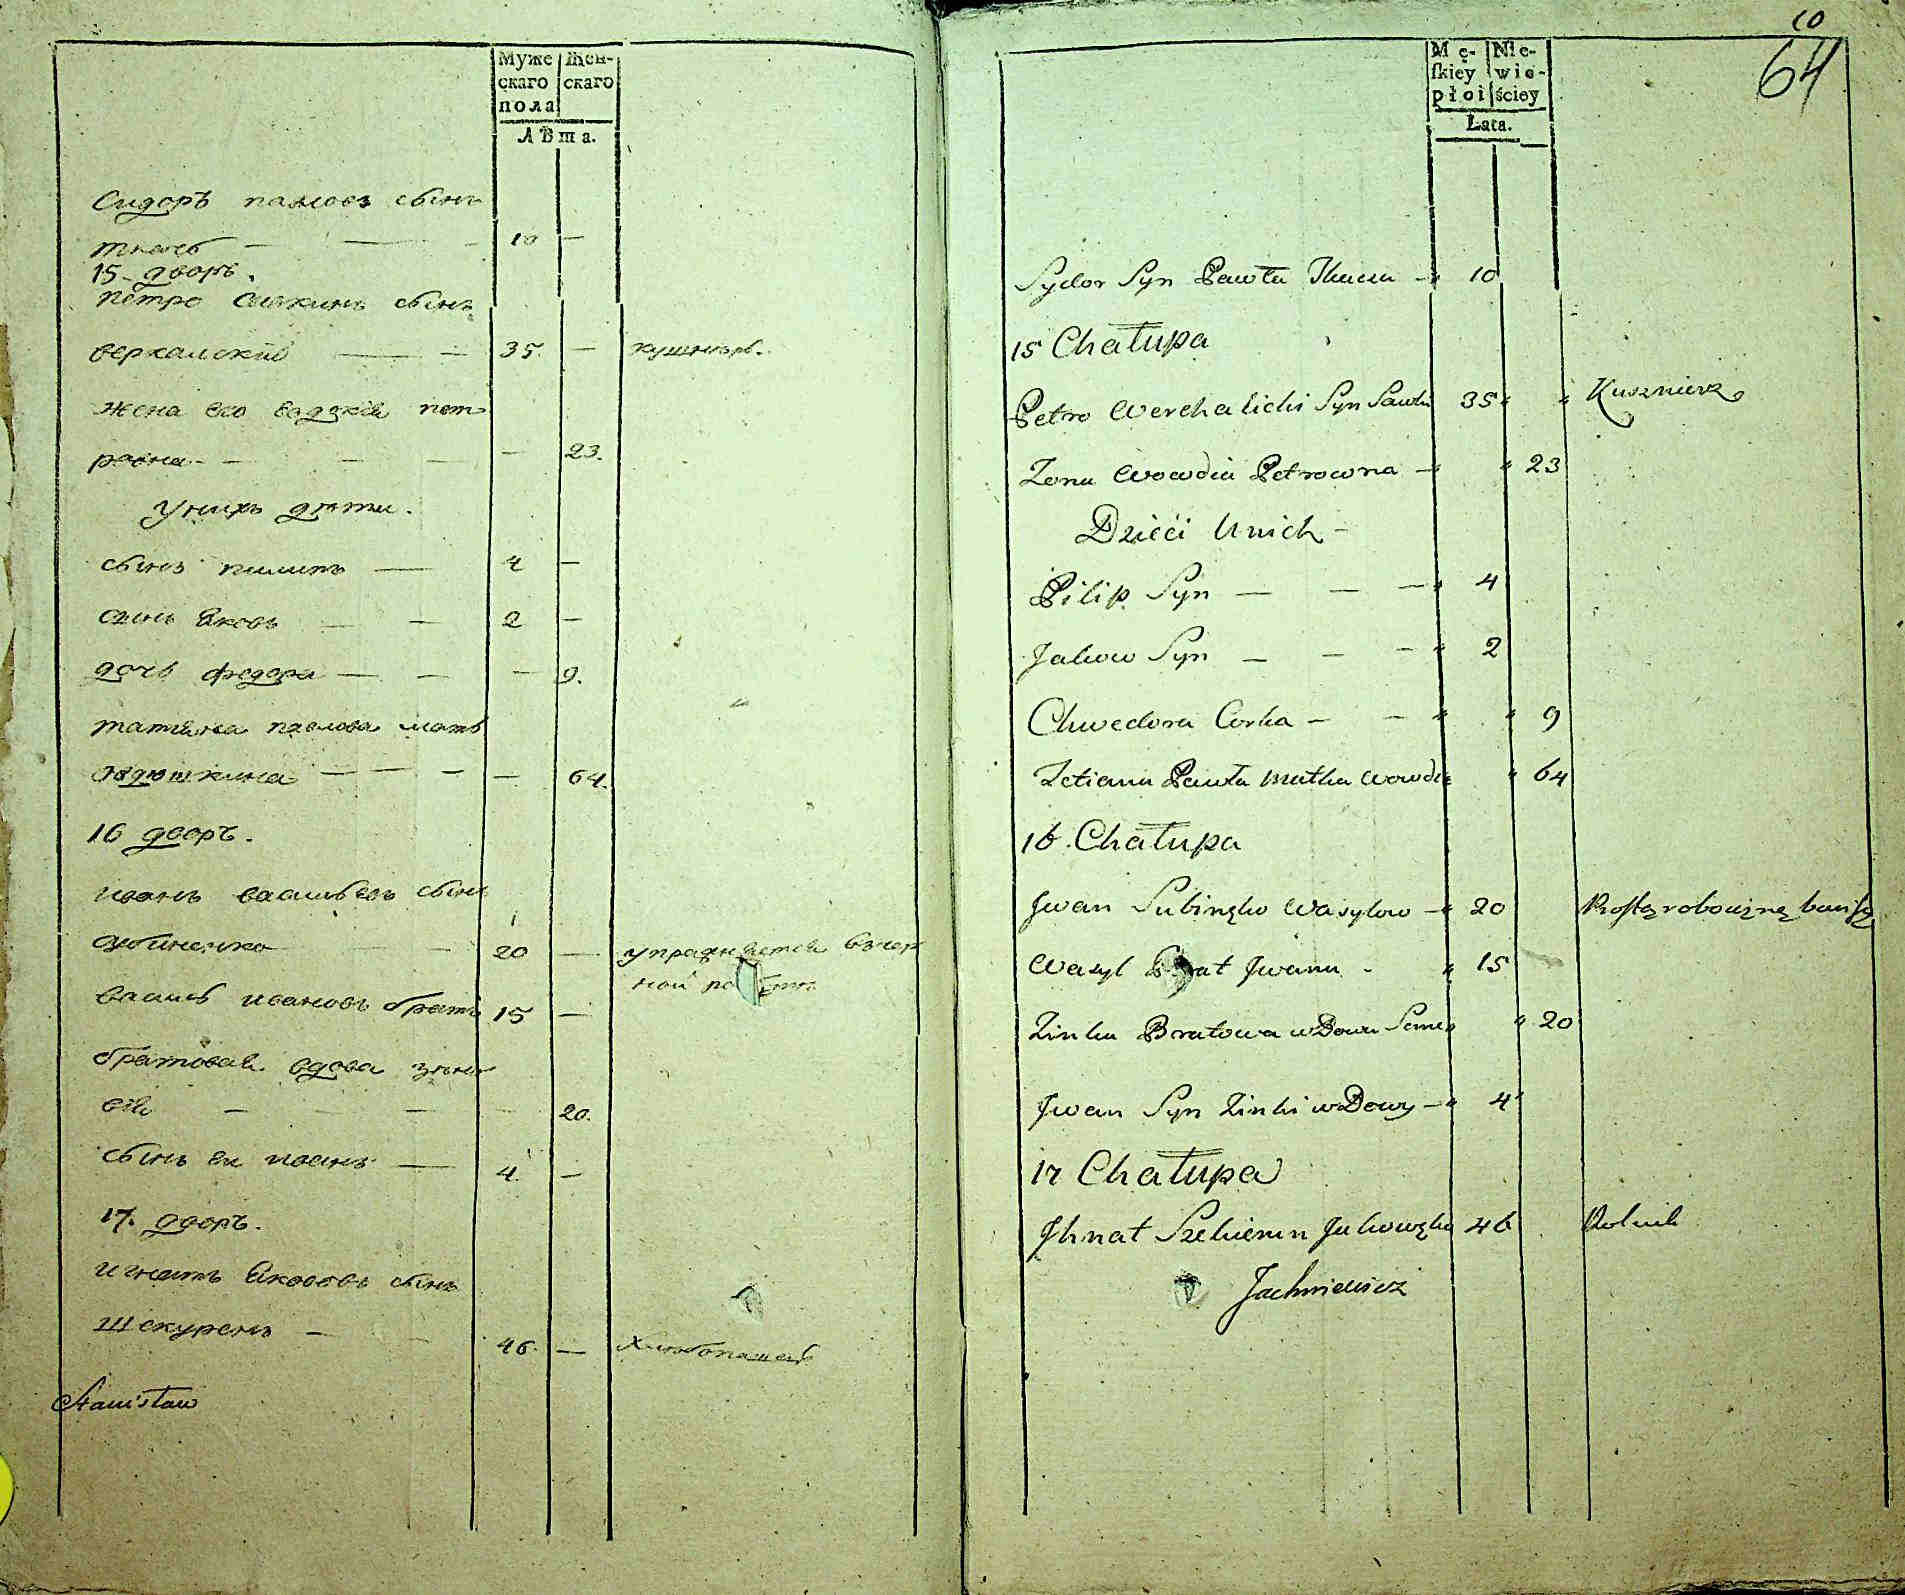 Муже
скаго
пола
Жен-
скаго
Лѣта.
Сидоръ павловъ сынъ
ткачь — — - 10 —
15 - дворъ.
петро савкинъ сынъ
верхалскій — — 35. — кушнеръ.
жена его евдокія пет
ровна - - — — — 23.
у нихъ дѣти.
сынъ пилипъ — 4 —
сынъ Яковъ — — 2 —
дочь федора — — — 9.
татіяна павлова мать
евдюшкина — — — — 64.
16 дворъ.
иванъ васильевъ сынъ
зубиненко — — 20 — упражняется в чер
василь ивановъ братъ 15 — ной работе
братовая вдова зѣно
вія — — — — 20.
сынъ ея иванъ — 4. —
17. дворъ.
игнатъ Яковов сынъ
Шекуренъ — — 46. — Хлѣбопашецъ
Stanisław
10
64
Mę-
skiey
płci
Nie-
wie-
ściey
Lata.
Sydor Syn Pawła Tkacza — 10
15 Chałupa
Petro Werchalicki Syn Sawki 35 Kusznierz
Żona Wowdia Petrowna — 23
Dzieci U nich —
Pilip Syn — — — 4
Jakow Syn — — — 2
Chwedora Corka — — 9
Tetiana Pawła matka Wowdi 64
16. Chałupa
Jwan Subinęko Wasylow — 20 Prostą robocizną bawi się
Wasyl Brat Jwana - 15
Zinka Bratowa wDowa 20
Jwan Syn Zinki wDowy — 4
17 Chałupa
Jhnat Szekieren 46 Rolnik
Jachniewicz